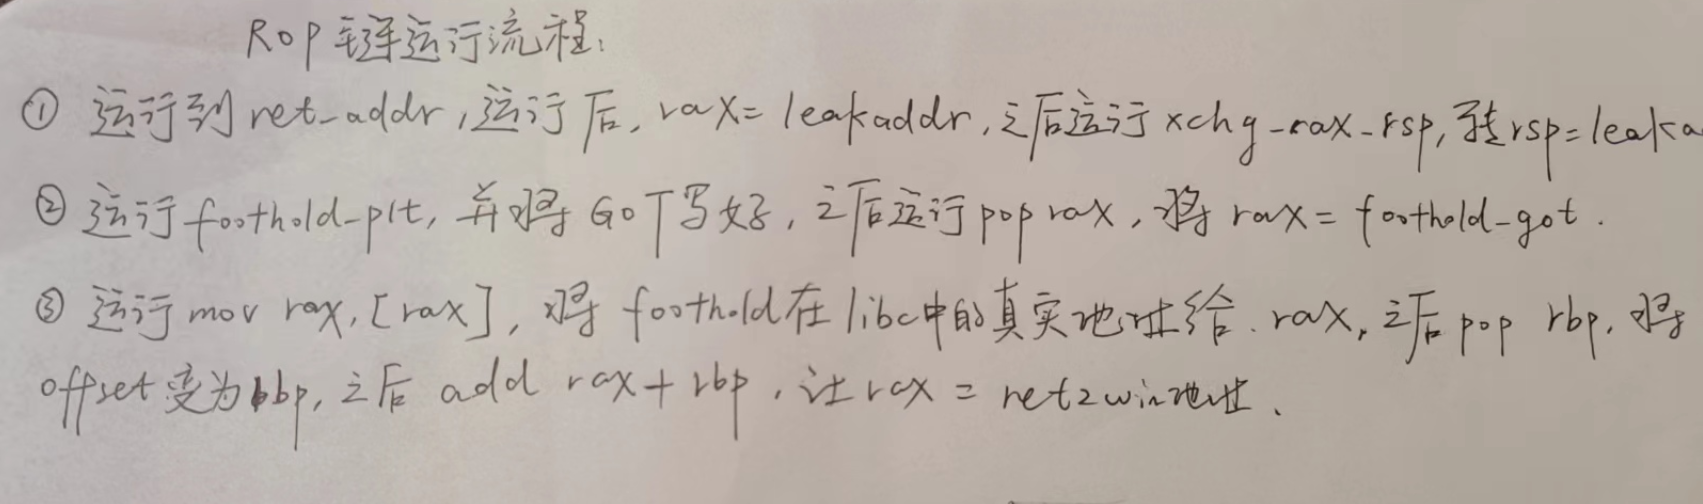 Rop链运行流程:
① 运行到ret-addr,运行后,rax=leakaddr,之后运行xchg-rax-rsp,转rsp=leaka
② 运行foothold-plt,并将GOT写好,之后运行pop rax,将rax=foothold-got.
③ 运行mov rax,[rax],将foothold在libc中的真实地址给.rax,之后pop rbp,将
offset变为bbp,之后add rax+rbp,让rax=ret2win地址、